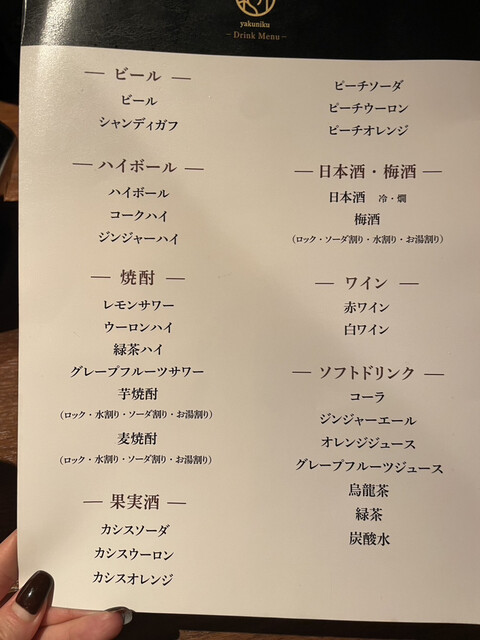 yakuniku
– Drink Menu –
— ビール —
ビール
シャンディガフ
— ハイボール —
ハイボール
コークハイ
ジンジャーハイ
— 焼酎 —
レモンサワー
ウーロンハイ
緑茶ハイ
グレープフルーツサワー
芋焼酎
（ロック・水割り・ソーダ割り・お湯割り）
麦焼酎
（ロック・水割り・ソーダ割り・お湯割り）
— 果実酒 —
カシスソーダ
カシスウーロン
カシスオレンジ
ピーチソーダ
ピーチウーロン
ピーチオレンジ
— 日本酒・梅酒 —
日本酒 冷・燗
梅酒
（ロック・ソーダ割り・水割り・お湯割り）
— ワイン —
赤ワイン
白ワイン
— ソフトドリンク —
コーラ
ジンジャーエール
オレンジジュース
グレープフルーツジュース
烏龍茶
緑茶
炭酸水